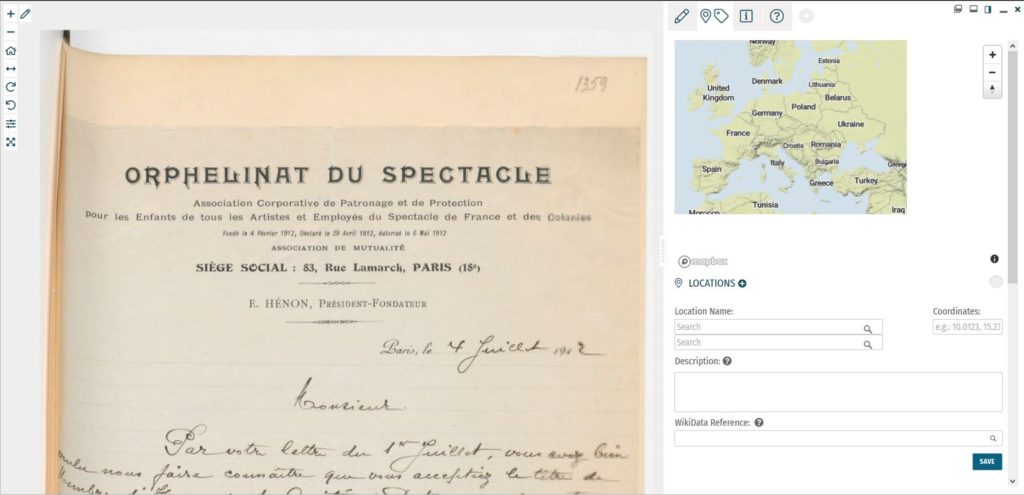 1359
ORPHELINAT DU SPECTACLE
Association Corporative de Patronage et de Protection
Pour les Enfants de tous les Artistes et Employés du Spectacle de France et des Colonies
Fondé le 4 Février 1912, Déclaré le 29 Avril 1912, Autorisé le 6 Mai 1912
ASSOCIATION DE MUTUALITÉ
SIÈGE SOCIAL : 83, Rue Lamarck, PARIS (18e)
E. HÉNON, PRÉSIDENT-FONDATEUR
Paris, le 4 Juillet 1912
Monsieur
Par votre lettre du 1er Juillet, vous avez bien
voulu nous faire connaître que vous acceptiez le titre de
Norway
Estonia
United Kingdom
Denmark
Lithuania
Belarus
Poland
Germany
Ukraine
France
Croatia
Romania
Italy
Bulgaria
Spain
Georgia
Greece
Turkey
Tunisia
Morocco
Iraq
mapbox
LOCATIONS
Location Name:
Coordinates:
Search
e.g.: 10.0123, 15.23
Search
Description:
WikiData Reference:
SAVE